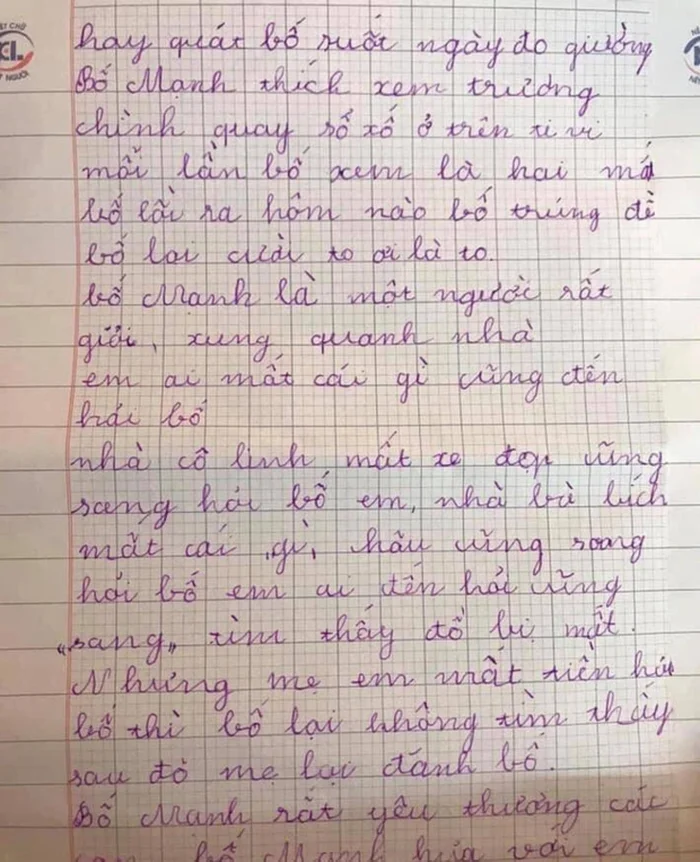 hay quát bố suốt ngày do giường
Bố Mạnh thích xem trương
chình quay số xố ở trên ti vi
mỗi lần bố xem là hai mắ
bố lồi ra hôm nào bố trúng đề
bố lại cười to ơi là to.
bố Mạnh là một người rất
giỏi, xung quanh nhà
em ai mất cái gì cũng đến
hỏi bố
nhà cô linh mất xe đạp cũng
sang hỏi bố em, nhà bà bích
mất cái gì, hầu cũng soang
hỏi bố em ai đến hỏi cũng
"sang" tìm thấy đồ bị mất.
Nhưng mẹ em mất tiền hỏi
bố thì bố lại không tìm thấy
sau đó mẹ lại đánh bố.
Bố Mạnh rất yêu thương các
bố Mạnh hứa với em